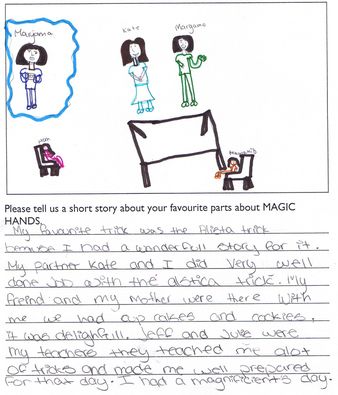 Maryama
Kate
Margano
mom
Please tell us a short story about your favourite parts about MAGIC
HANDS.
My favourite trick was the trick
because I had a wonderfull story for it.
My partner Kate and I did very well
done job with the trick. My
freind and my mother were there with
me we had cup cakes and cookies.
It was delighfill. Jeff and Jules were
my teachers they teached me alot
of tricks and made me well prepared
for that day. I had a magnificents day.